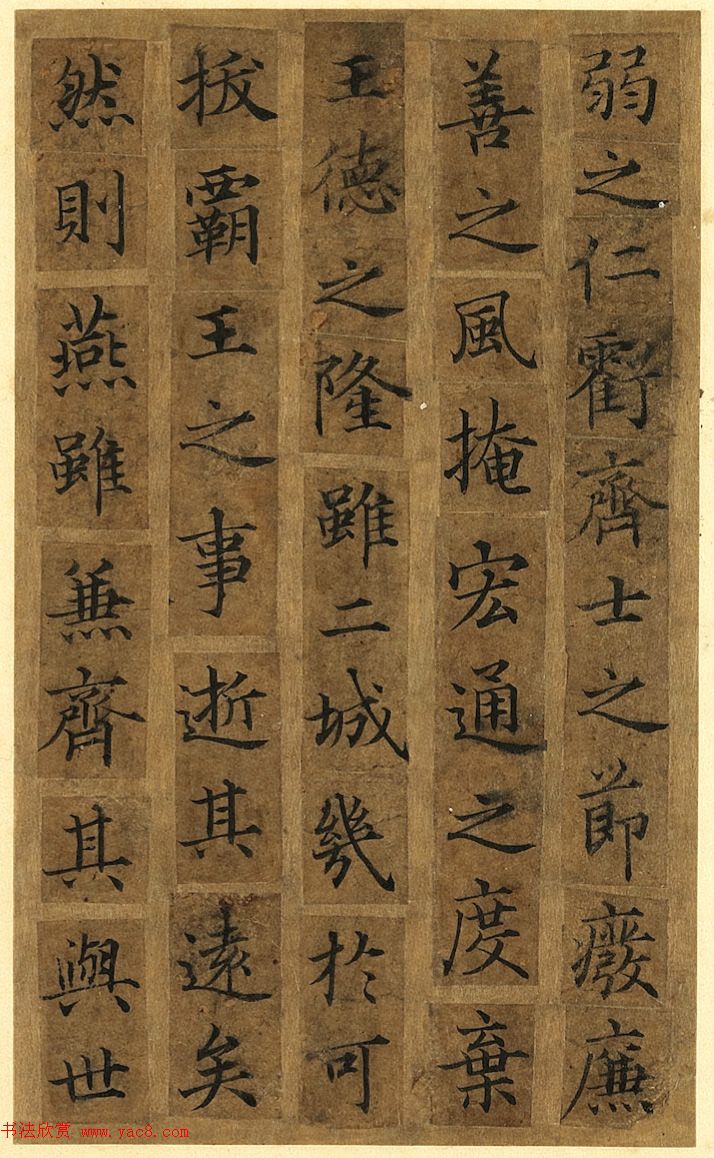 弱之仁虧齊士之節癈廉
善之風掩宏通之度棄
王德之隆雖二城幾於可
拔霸王之事逝其遠矣
然則燕雖兼齊其與世
书法欣赏 www.yac8.com